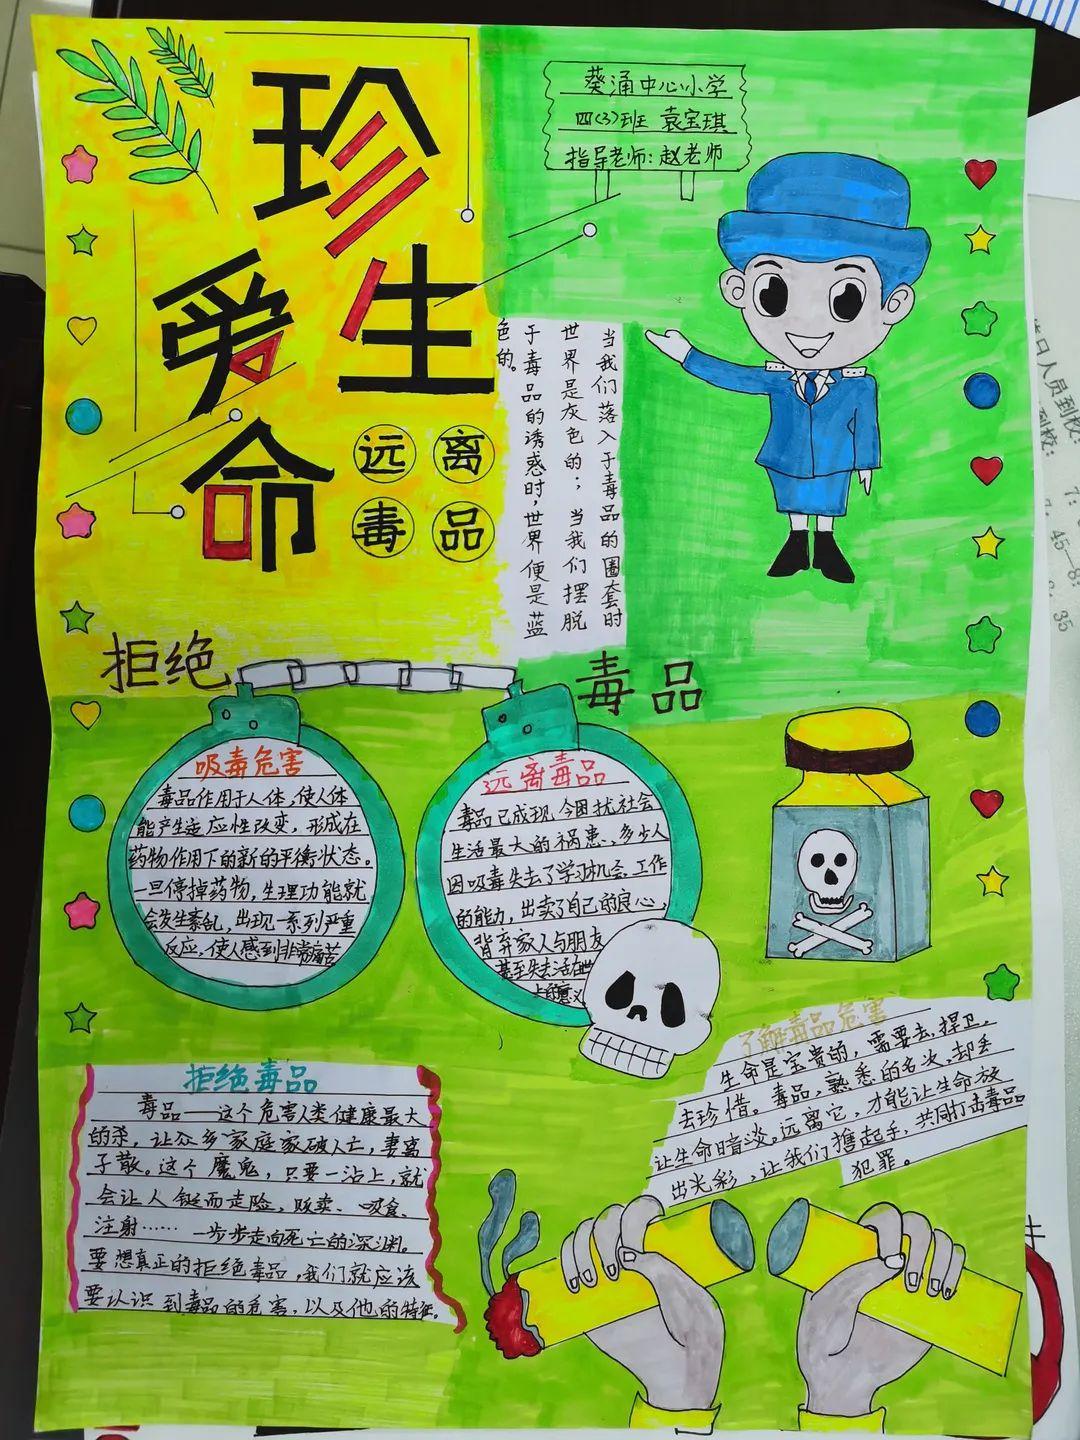 珍
爱 生
命
远 离
毒 品
葵涌中心小学
四(3)班 袁宝琪
指导老师:赵老师
当我们落入于毒品的圈套时
世界是灰色的；当我们摆脱
于毒品的诱惑时,世界便是蓝
色的。
拒绝 毒品
吸毒危害
毒品作用于人体,使人体
能产生适应性改变，形成在
药物作用下的新的平衡状态。
一旦停掉药物,生理功能就
会发生紊乱,出现一系列严重
反应,使人感到非常痛苦
远离毒品
毒品已成现今困扰社会
生活最大的祸患、多少人
因吸毒失去了学习机会、工作
的能力,出卖了自己的良心,
背弃家人与朋友
甚至失去活在世
上的意义
拒绝毒品
毒品——这个危害人类健康最大
的杀，让众多家庭家破人亡,妻离
子散。这个魔鬼，只要一沾上,就
会让人铤而走险，贩卖、吸食、
注射…… 一步步走向死亡的深渊。
要想真正的拒绝毒品,我们就应该
要认识到毒品的危害,以及他的特征。
了解毒品危害
生命是宝贵的，需要去捍卫，
去珍惜。毒品,熟悉的名次,却丢
让生命暗淡。远离它，才能让生命放
出光彩，让我们携起手，共同打击毒品
犯罪。
人员到校:
到校:
7:
7:45—8:
8:35